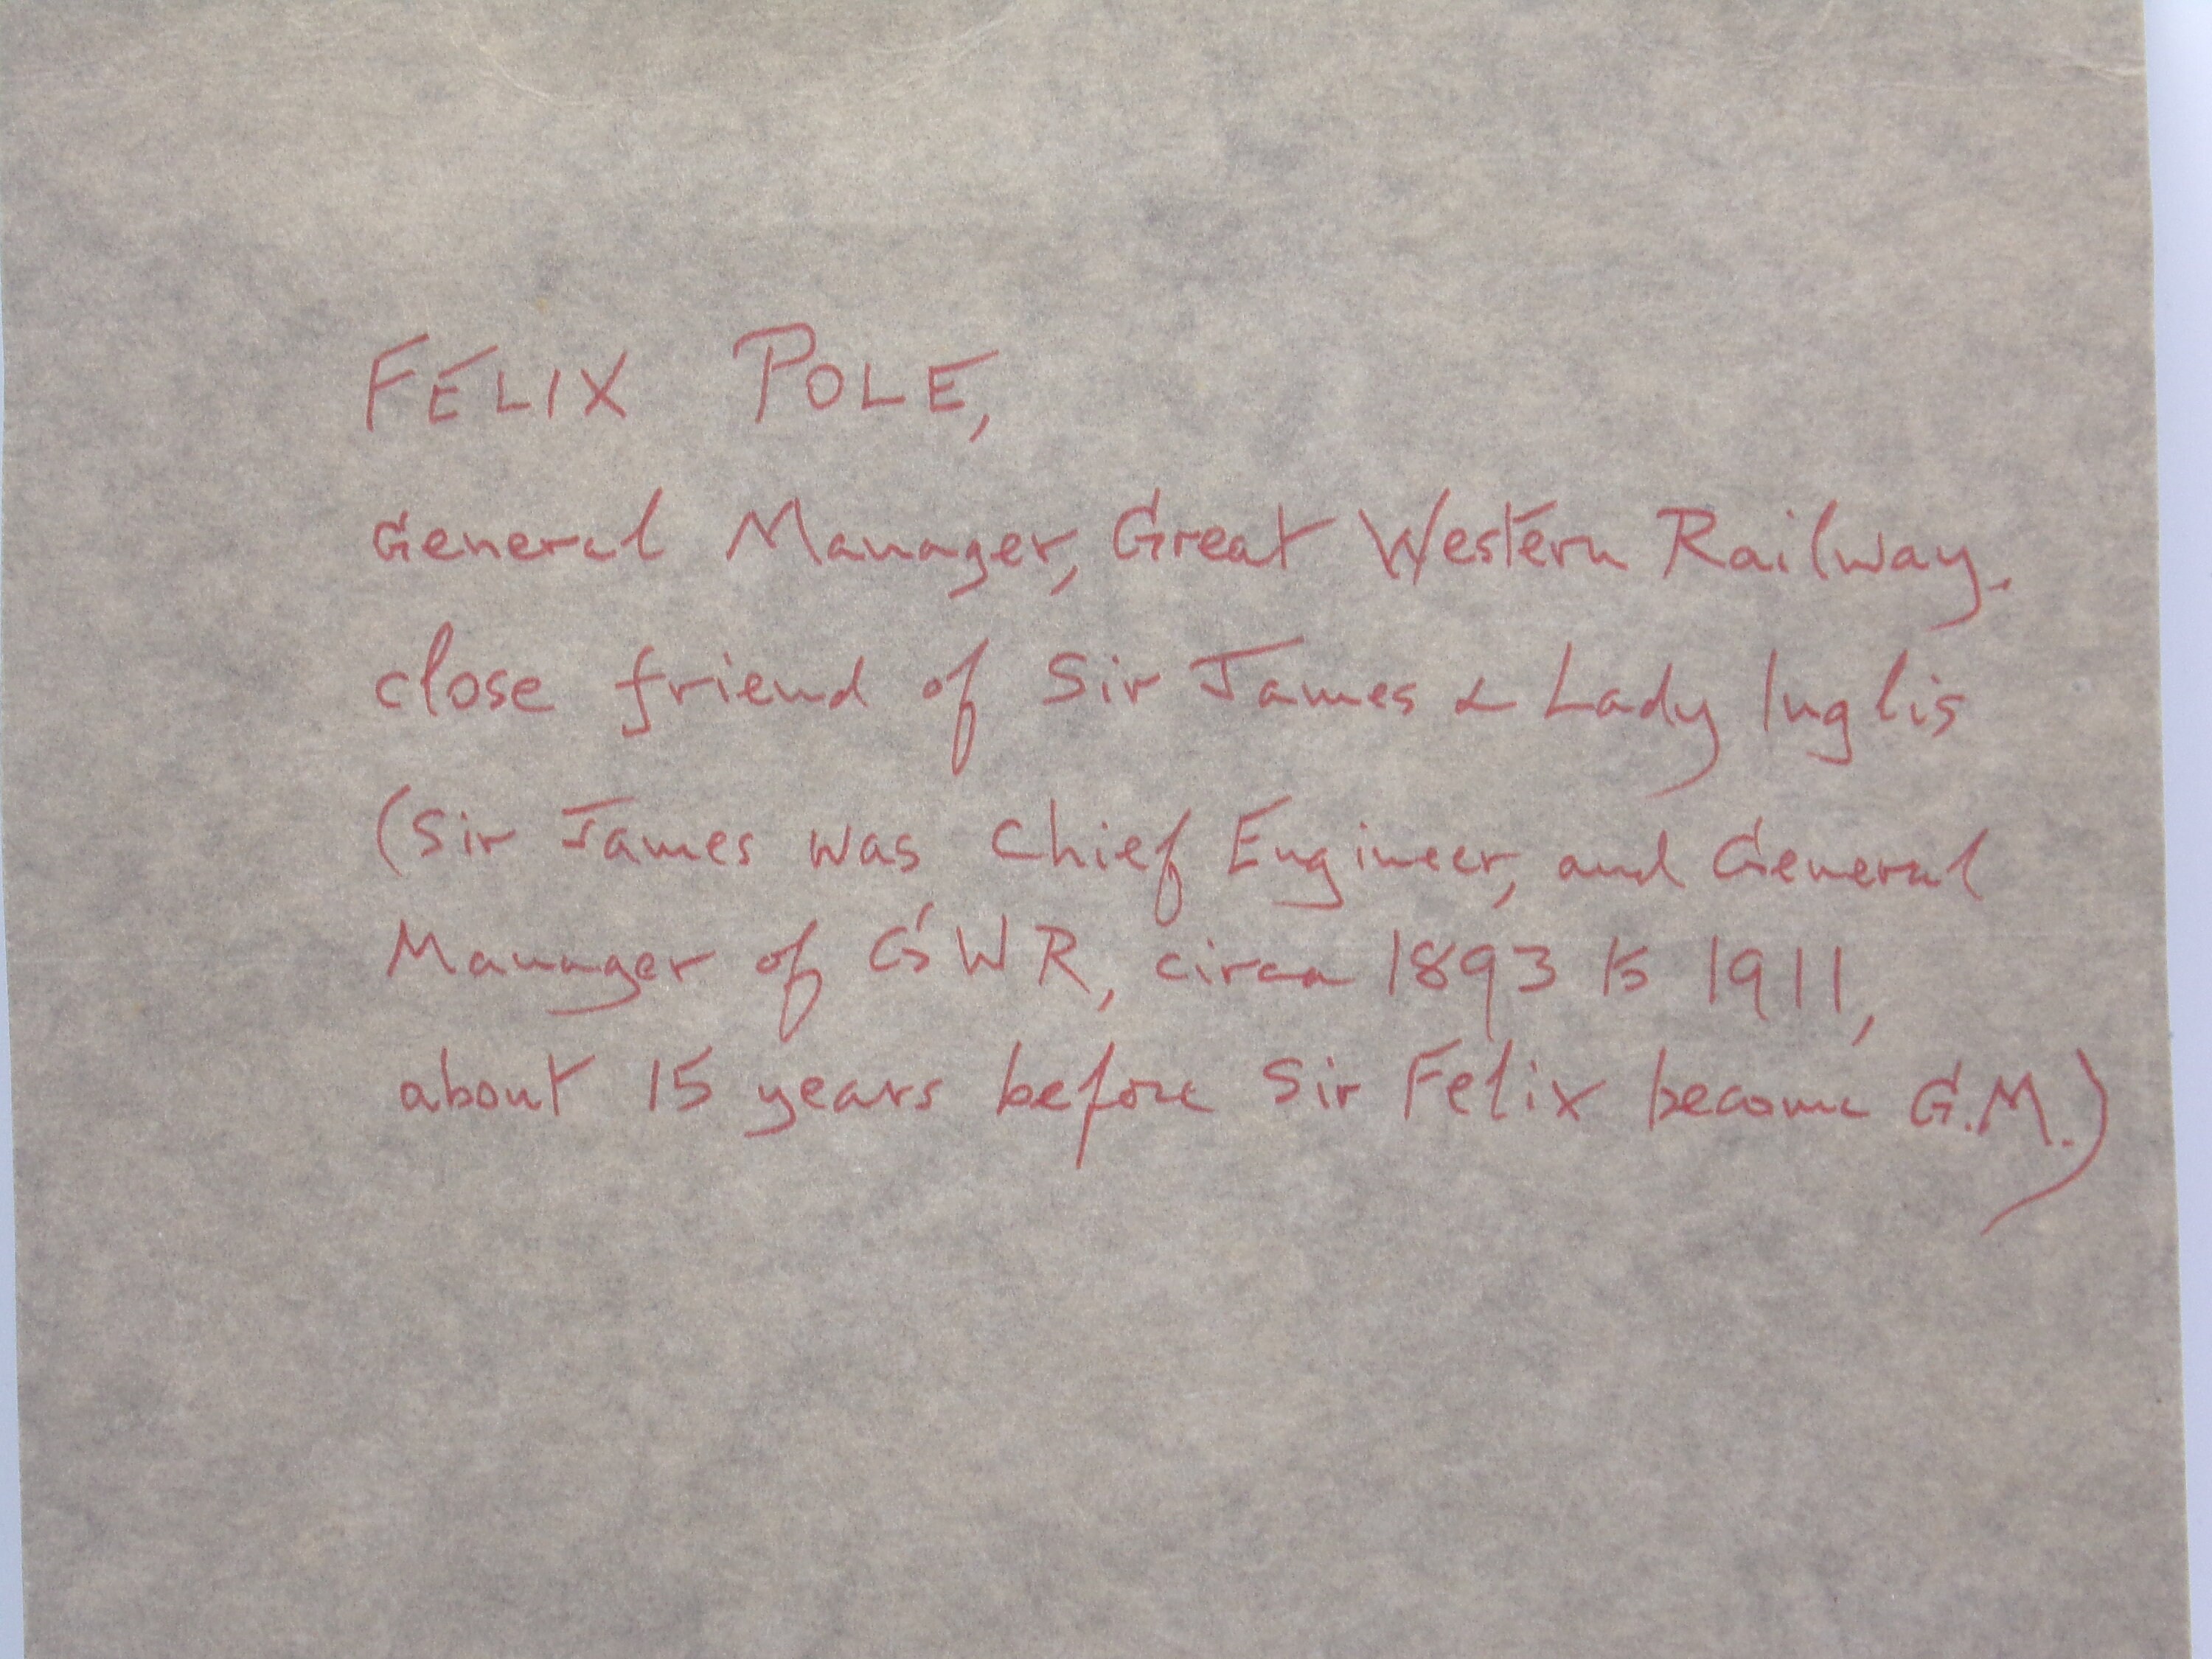 FELIX POLE,
General Manager, Great Western Railway.
close friend of Sir James & Lady Inglis
(Sir James was Chief Engineer, and General
Manager of GWR, circa 1893 to 1911,
about 15 years before Sir Felix become G.M.)